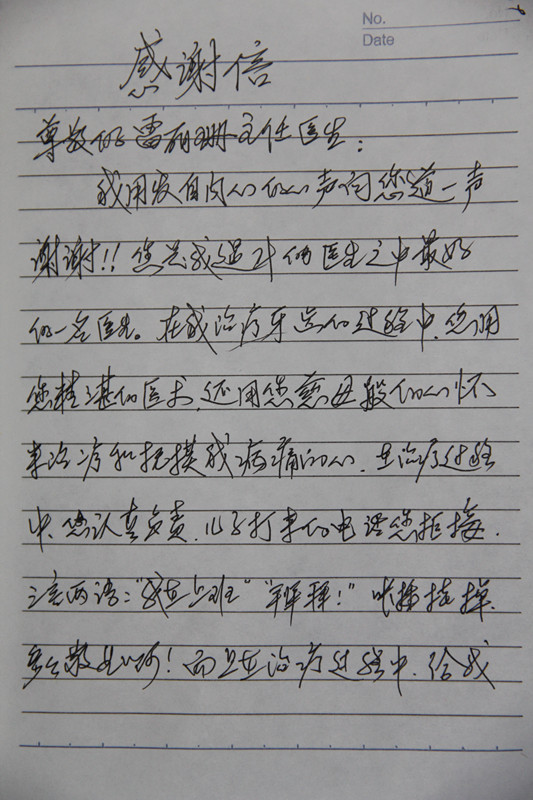 No.
Date
感谢信
尊敬的雷丽珊主任医生:
我用发自内心的心声向您道一声
谢谢!! 您是我遇到的医生之中最好
的一名医生。在我治疗牙齿的过程中,您用
您精湛的医术,还用您慈母般的心怀
来治疗和抚摸我病痛的心,在治疗过程
中,您认真负责,儿子打来的电话您拒接,
三言两语:"我在上班""拜拜!"
多么敬业啊! 而且在治疗过程中,给我